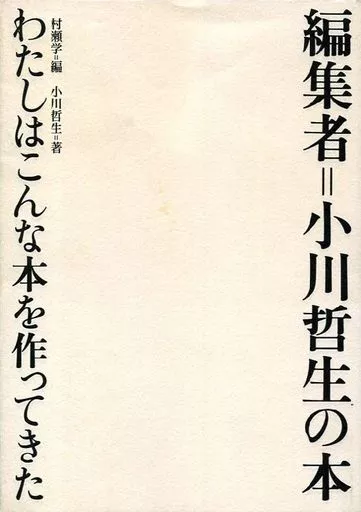 編集者=小川哲生の本
わたしはこんな本を作ってきた
村瀬学=編　小川哲生=著